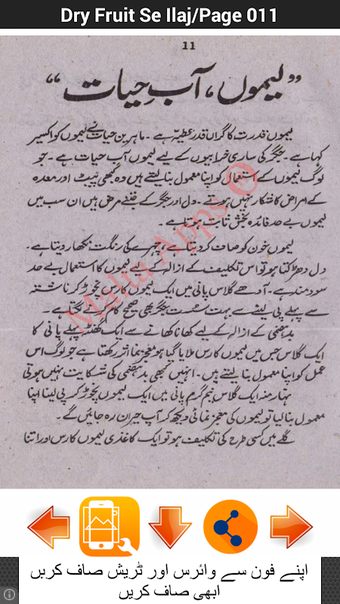 Dry Fruit Se Ilaj/Page 011
11
”لیموں، آبِ حیات“
لیموں قدرت کا گراں قدر عطیہ ہے۔ ماہرین حیات نے لیموں کو اکسیر
کہا ہے۔ جگر کی ساری خرابیوں کے لیے لیموں آبِ حیات ہے۔ جو
لوگ لیموں کے استعمال کو اپنا معمول بنا لیتے ہیں وہ کبھی پیٹ اور معدہ
کے امراض کا شکار نہیں ہوتے۔ دل اور جگر کے جتنے مرض ہیں ان سب میں
لیموں بے حد فائدہ بخش ثابت ہوتا ہے۔
لیموں خون کو صاف کر دیتا ہے، چہرے کی رنگت نکھار دیتا ہے۔
دل دھڑکتا ہو تو اس تکلیف کے ازالہ کے لیے لیموں کا استعمال بے حد
سود مند ہے۔ آدھے گلاس پانی میں ایک لیموں کا رس نچوڑ کر ناشتہ
سے پہلے پی لینے سے بہت سست جگر بھی صحیح کام کرنے لگتا ہے۔
بدہضمی کے ازالہ کے لیے کھانا کھانے سے ایک گھنٹہ پہلے پانی کا
ایک گلاس جس میں لیموں کا رس ملایا گیا ہو معجز نما اثر رکھتا ہے جو لوگ اس
عمل کو اپنا معمول بنا لیتے ہیں۔ انہیں کبھی بدہضمی کی شکایت نہیں ہوتی
نہار منہ ایک گلاس نیم گرم پانی میں ایک لیموں نچوڑ کر پی لینا اپنا
معمول بنا لیا تو لیموں کی معجز نمائی دیکھ کر آپ حیران رہ جائیں گے۔
گلے میں کسی طرح کی تکلیف ہو تو ایک کاغذی لیموں کا رس اور اتنا
Malta Apps
اپنے فون سے وائرس اور ٹریش صاف کریں
ابھی صاف کریں